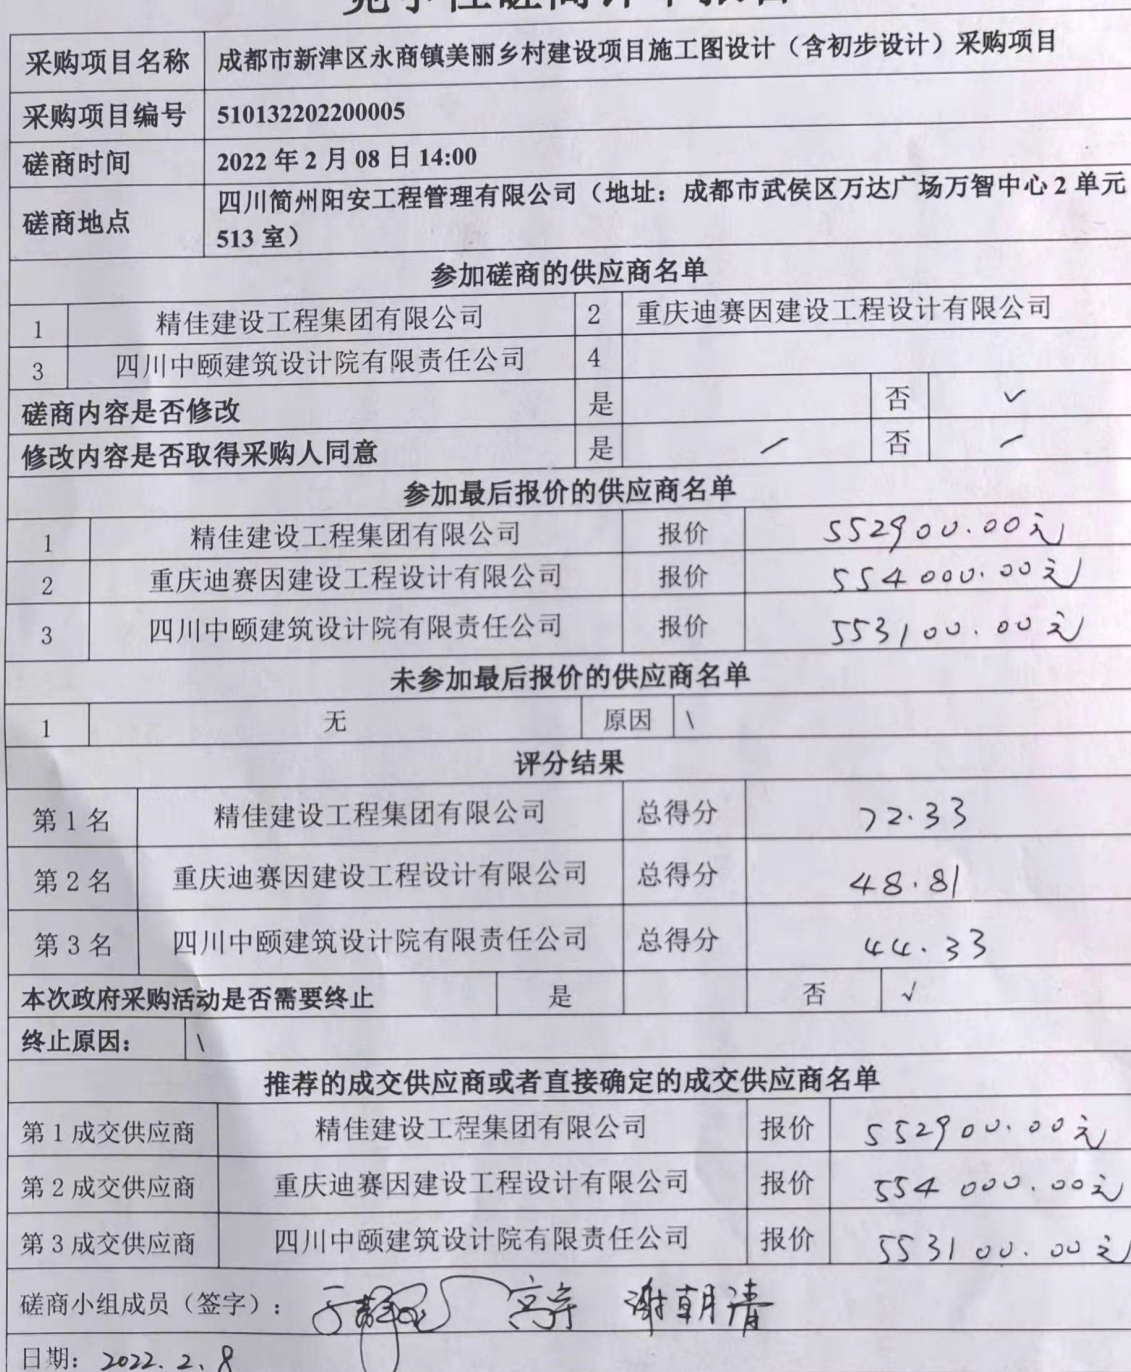 采购项目名称 成都市新津区永商镇美丽乡村建设项目施工图设计（含初步设计）采购项目
采购项目编号 510132202200005
磋商时间 2022 年 2 月 08 日 14:00
磋商地点 四川简州阳安工程管理有限公司（地址：成都市武侯区万达广场万智中心 2 单元
513 室）
参加磋商的供应商名单
1 精佳建设工程集团有限公司 2 重庆迪赛因建设工程设计有限公司
3 四川中颐建筑设计院有限责任公司 4
磋商内容是否修改 是 否 ✓
修改内容是否取得采购人同意 是 / 否 /
参加最后报价的供应商名单
1 精佳建设工程集团有限公司 报价 552900.00元
2 重庆迪赛因建设工程设计有限公司 报价 554000.00元
3 四川中颐建筑设计院有限责任公司 报价 553100.00元
未参加最后报价的供应商名单
1 无 原因 \
评分结果
第 1 名 精佳建设工程集团有限公司 总得分 72.33
第 2 名 重庆迪赛因建设工程设计有限公司 总得分 48.81
第 3 名 四川中颐建筑设计院有限责任公司 总得分 44.33
本次政府采购活动是否需要终止 是 否 √
终止原因： \
推荐的成交供应商或者直接确定的成交供应商名单
第 1 成交供应商 精佳建设工程集团有限公司 报价 552900.00元
第 2 成交供应商 重庆迪赛因建设工程设计有限公司 报价 554000.00元
第 3 成交供应商 四川中颐建筑设计院有限责任公司 报价 553100.00元
磋商小组成员（签字）： 谢朝清
日期： 2022.2.8